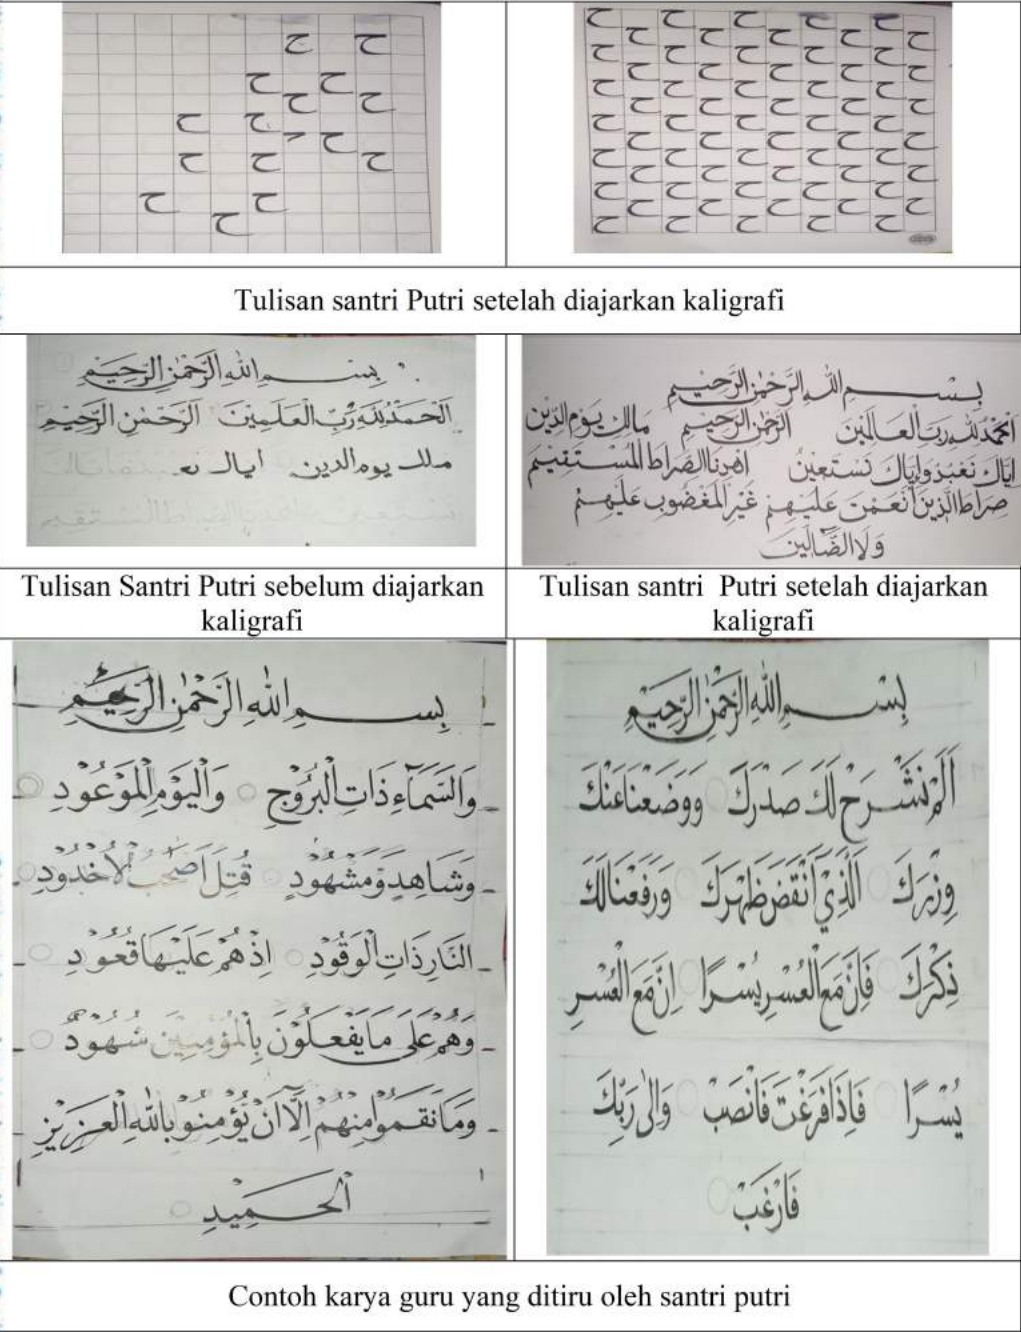 ح ح
ح ح
ح ح
ح ح
ح
ح ح
ح ح
ح
Tulisan santri Putri setelah diajarkan kaligrafi
بسم الله الرحمن الرحيم
الحمد لله رب العلمين الرحمن الرحيم
ملك يوم الدين اياك نع
نستعين اهدنا الصراط المستقيم
بسم الله الرحمن الرحيم
الحمد لله رب العالمين الرحمن الرحيم مالك يوم الدين
اياك نعبد واياك نستعين اهدنا الصراط المستقيم
صراط الذين انعمت عليهم غير المغضوب عليهم
ولا الضالين
Tulisan Santri Putri sebelum diajarkan
kaligrafi
Tulisan santri Putri setelah diajarkan
kaligrafi
بسم الله الرحمن الرحيم
والسماء ذات البروج واليوم الموعود
وشاهد ومشهود قتل اصحب الاخدود
النار ذات الوقود اذ هم عليها قعود
وهم على ما يفعلون بالمؤمنين شهود
وما نقموا منهم الا ان يؤمنوا بالله العزيز
الحميد
بسم الله الرحمن الرحيم
الم نشرح لك صدرك ووضعنا عنك
وزرك الذي انقض ظهرك ورفعنا لك
ذكرك فان مع العسر يسرا ان مع العسر
يسرا فاذا فرغت فانصب والى ربك
فارغب
Contoh karya guru yang ditiru oleh santri putri